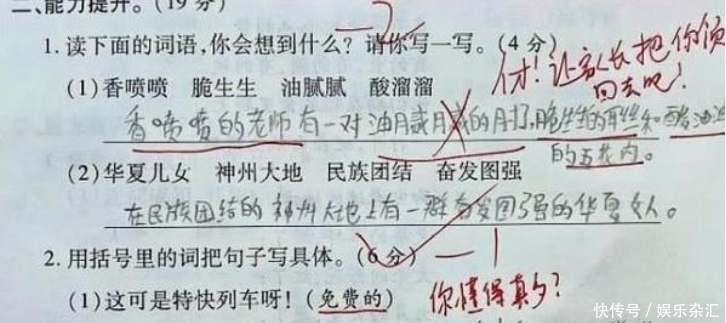 二、能力提升。(19分)
1.读下面的词语,你会想到什么？请你写一写。(4分)
(1)香喷喷 脆生生 油腻腻 酸溜溜
才！让家长把你领回去吧！
香喷喷的老师有一对油腻腻的肘子,脆生生的耳丝和酸溜溜的五花肉。
(2)华夏儿女 神州大地 民族团结 奋发图强
在民族团结的神州大地上有一群奋发图强的华夏女人。
2.用括号里的词把句子写具体。(6分) —1
(1)这可是特快列车呀！(免费的)
你懂得真多？
快传号/娱乐杂汇